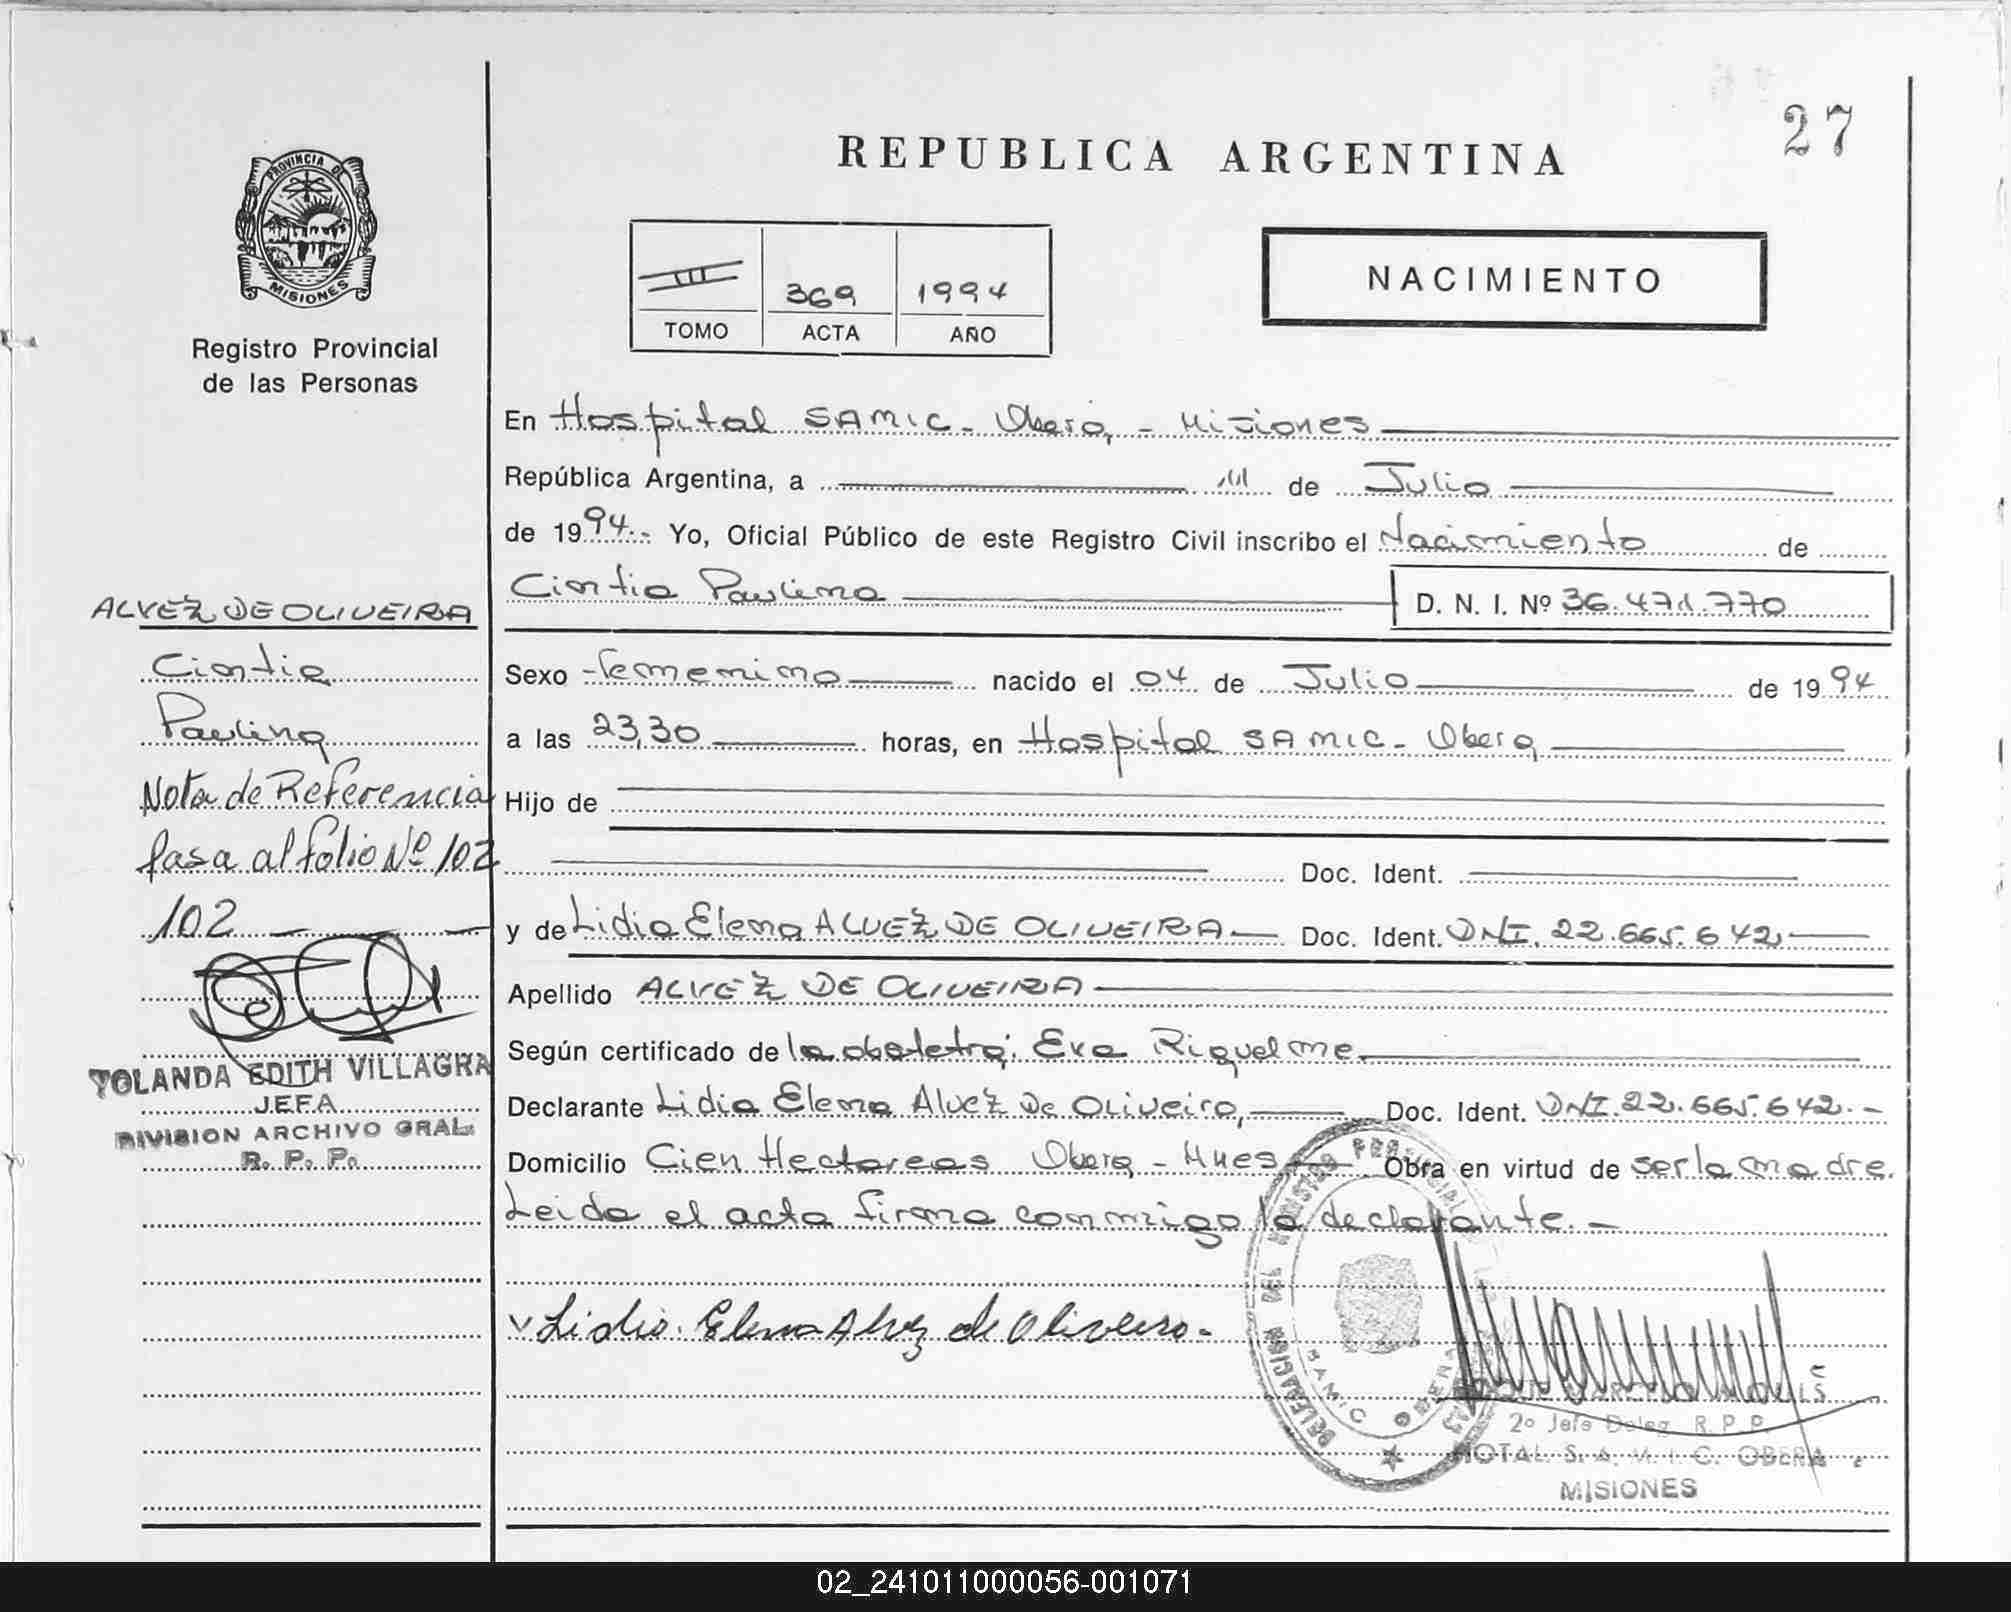 27
REPUBLICA ARGENTINA
PROVINCIA DE
MISIONES
Registro Provincial
de las Personas
III 369 1994
TOMO ACTA AÑO
NACIMIENTO
En Hospital SAMIC - Obera, - Misiones
República Argentina, a 11 de Julio
de 1994.- Yo, Oficial Público de este Registro Civil inscribo el Nacimiento de
Cintia Paulina D. N. I. Nº 36.471.770
Sexo femenino nacido el 04 de Julio de 1994
a las 23,30 horas, en Hospital SAMIC - Obera,
Hijo de
Doc. Ident.
y de Lidia Elena ALVEZ DE OLIVEIRA Doc. Ident. DNI. 22.665.642
Apellido ALVEZ DE OLIVEIRA
Según certificado de la obstetra, Eva Riquelme.
Declarante Lidia Elena Alvez De Oliveira, Doc. Ident. DNI. 22.665.642.-
Domicilio Cien Hectareas Obera - Mnes Obra en virtud de ser la madre.
Leida el acta firma conmigo la declarante.-
Lidia Elena Alvez de Oliveira.
ALVEZ DE OLIVEIRA
Cintia
Paulina
Nota de Referencia
pasa al folio Nº 102
102
YOLANDA EDITH VILLAGRA
JEFA
DIVISION ARCHIVO GRAL.
R. P. P.
DELEGACION DEL REGISTRO
SAMIC OBERA
2º Jefe Deleg. R.P.P.
HOTAL S. A. M. I. C. OBERA
MISIONES
02_241011000056-001071